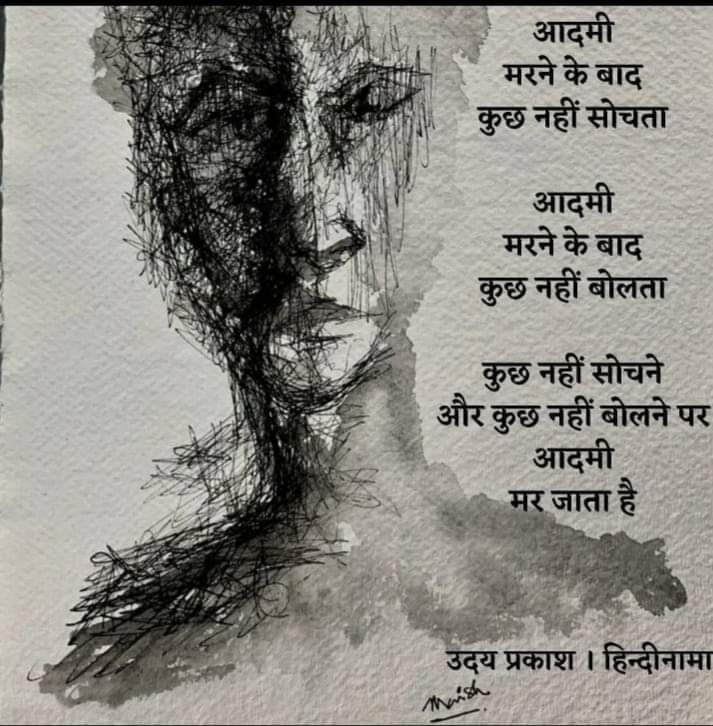 आदमी
मरने के बाद
कुछ नहीं सोचता
आदमी
मरने के बाद
कुछ नहीं बोलता
कुछ नहीं सोचने
और कुछ नहीं बोलने पर
आदमी
मर जाता है
उदय प्रकाश । हिन्दीनामा